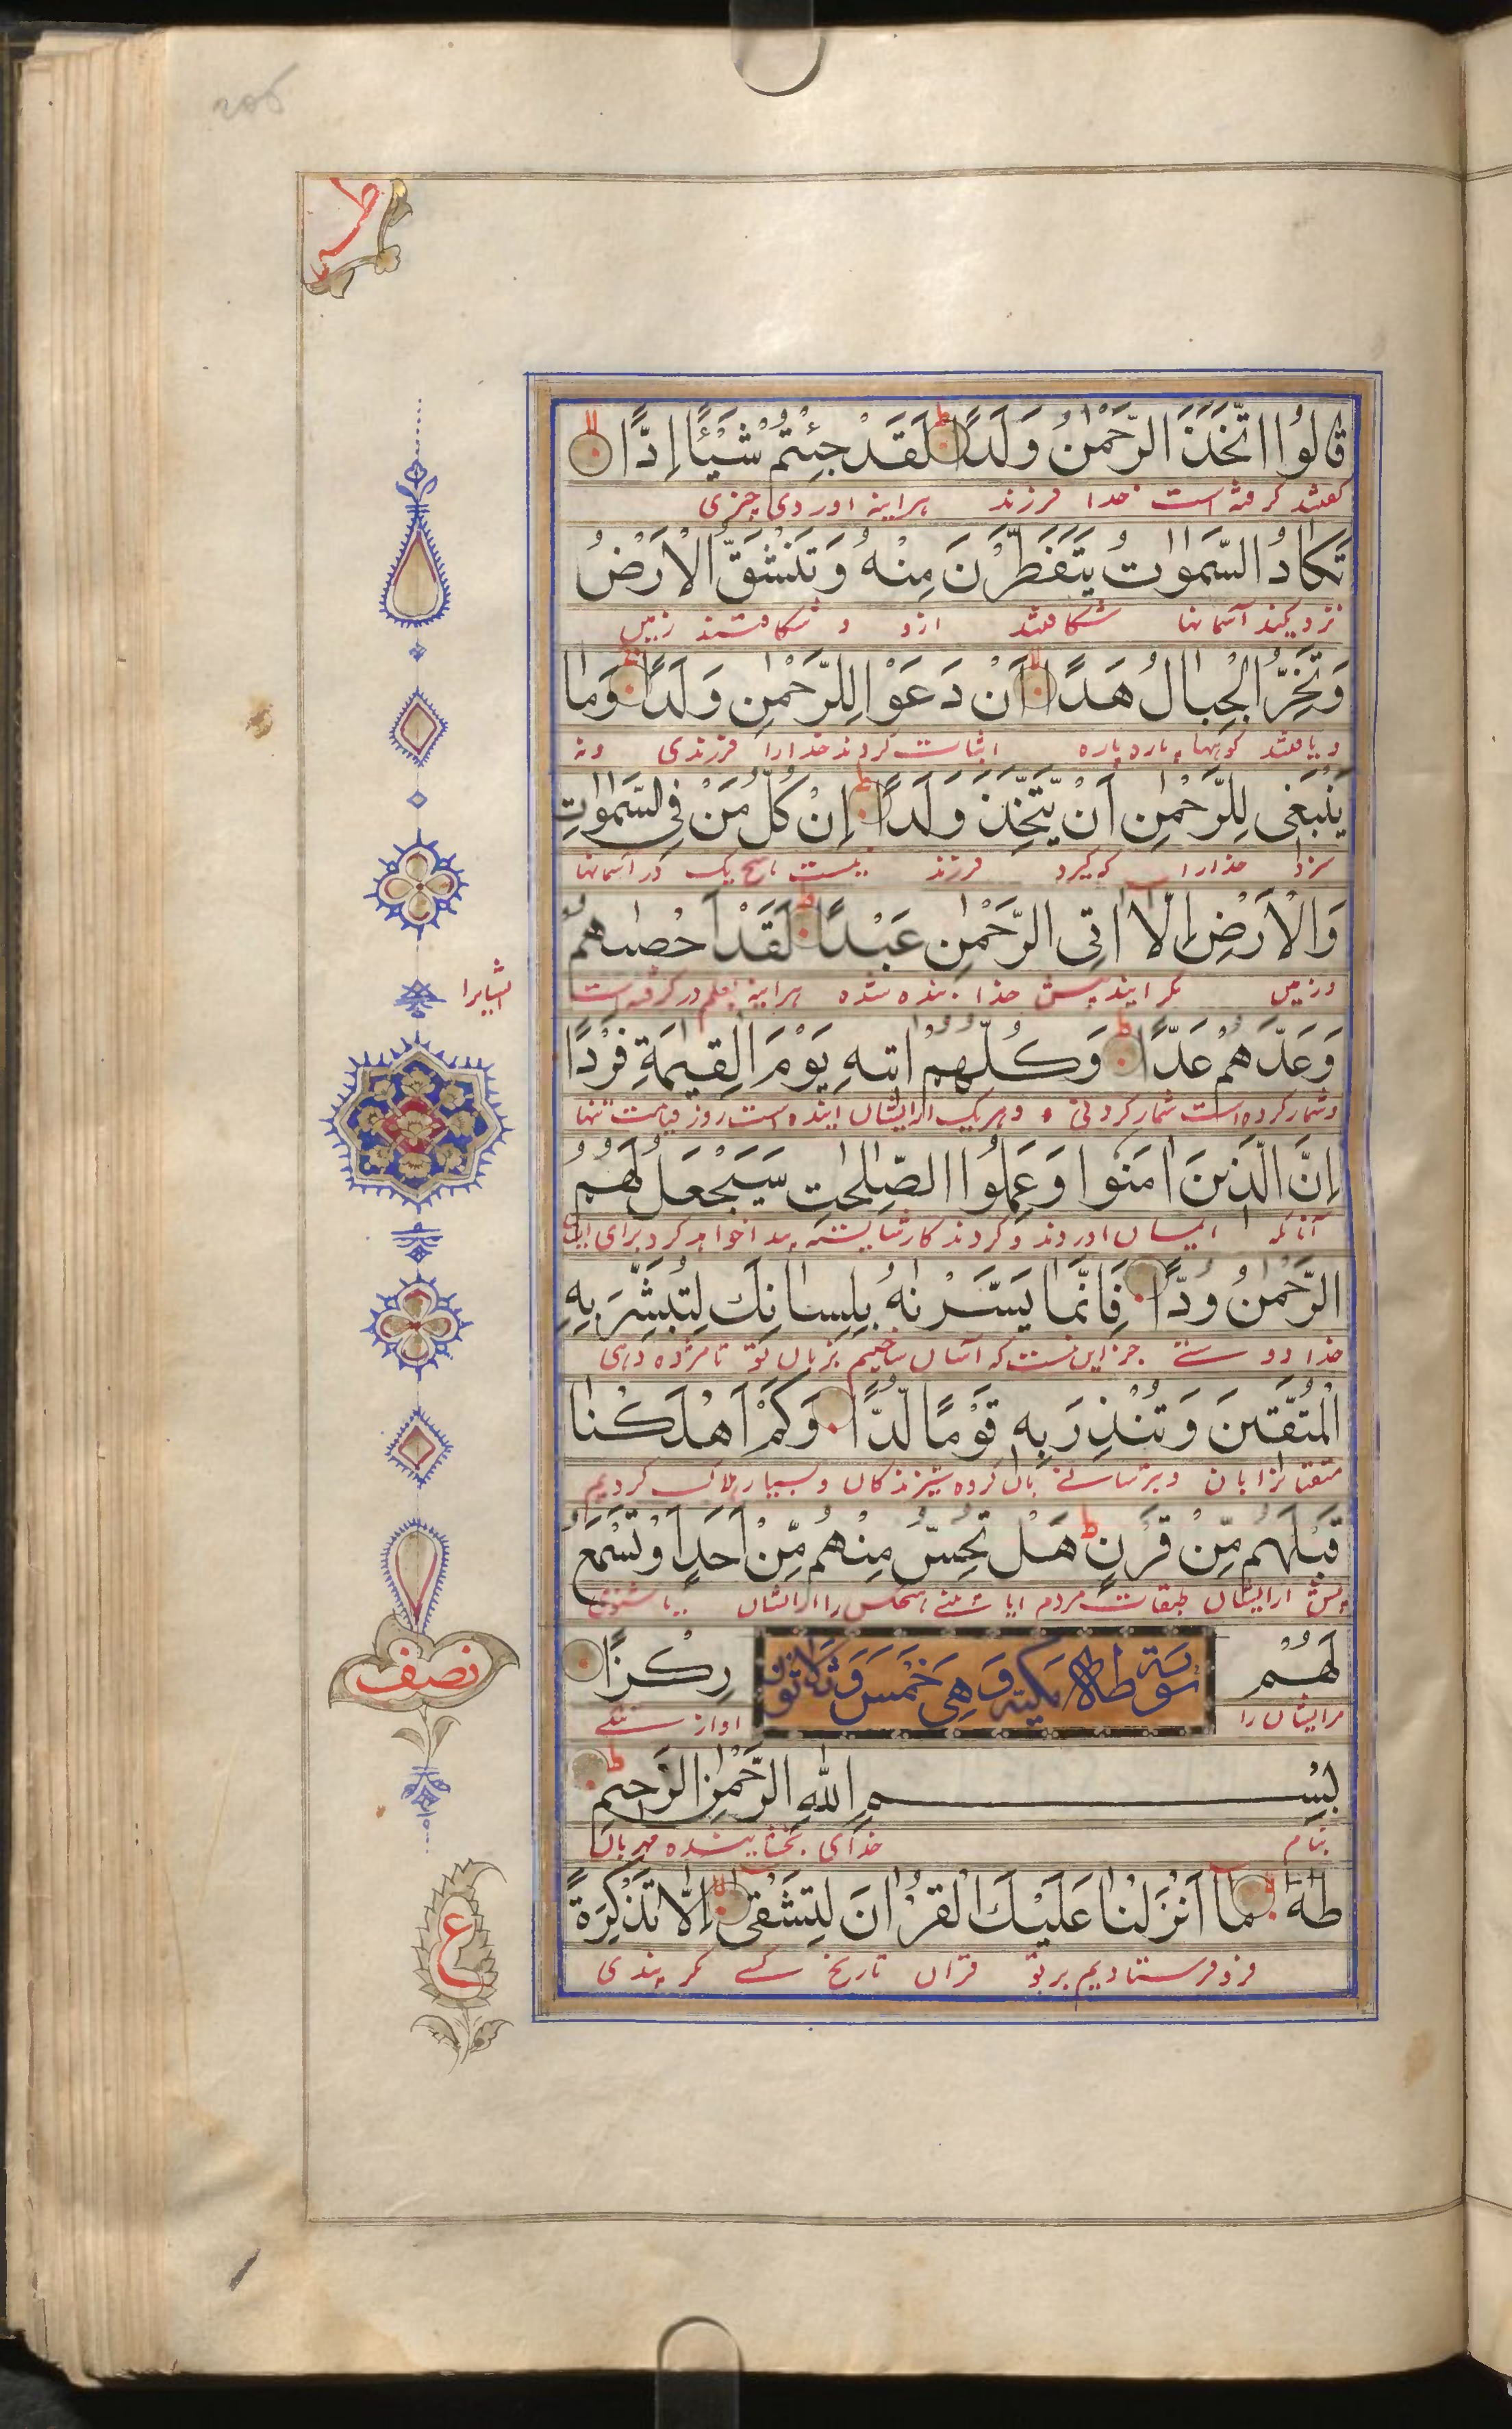 طه
قَالُوا اتَّخَذَ الرَّحْمٰنُ وَلَدًا لَقَدْ جِئْتُمْ شَيْئًا اِدًّا
گفتند گرفته است خدا فرزند هراینه اوردی چیزی
تَكَادُ السَّمٰوٰتُ يَتَفَطَّرْنَ مِنْهُ وَتَنْشَقُّ الْاَرْضُ
نزدیکند آسمانها شکافند ازو و شکافند زمین
وَتَخِرُّ الْجِبَالُ هَدًّا اَنْ دَعَوْا لِلرَّحْمٰنِ وَلَدًا وَمَا
کوهها پاره پاره اثبات کردند خدارا فرزندی ونه
يَنْبَغِى لِلرَّحْمٰنِ اَنْ يَّتَّخِذَ وَلَدًا اِنْ كُلُّ مَنْ فِى السَّمٰوٰتِ
سزد خدارا که گیرد فرزند نیست هیچ یک در آسمانها
وَالْاَرْضِ اِلَّا اٰتِى الرَّحْمٰنِ عَبْدًا لَقَدْ اَحْصٰىهُمْ
وزمین مگر ایند پیش خدا بنده شده هراینه بعلم در گرفته است
ایشانرا
وَعَدَّهُمْ عَدًّا وَكُلُّهُمْ اٰتِيهِ يَوْمَ الْقِيٰمَةِ فَرْدًا
وشمار کرده است شمار کردنی و هریک از ایشان اینده است روز قیامت تنها
اِنَّ الَّذِينَ اٰمَنُوا وَعَمِلُوا الصّٰلِحٰتِ سَيَجْعَلُ لَهُمُ
آنانکه ایمان اوردند و کردند کار شایسته پیدا خواهد کرد برای ایشان
الرَّحْمٰنُ وُدًّا فَاِنَّمَا يَسَّرْنٰهُ بِلِسَانِكَ لِتُبَشِّرَ بِهِ
خدا دوستی جز این نیست که آسان ساختیم بزبان تو تا مژده دهی
الْمُتَّقِينَ وَتُنْذِرَ بِهِ قَوْمًا لُّدًّا وَكَمْ اَهْلَكْنَا
متقیانرا بان وبترسانی بان گروه ستیزندگان وبسیار هلاک کردیم
قَبْلَهُمْ مِّنْ قَرْنٍ هَلْ تُحِسُّ مِنْهُمْ مِّنْ اَحَدٍ اَوْ تَسْمَعُ
پیش از ایشان طبقات مردم ایا هیچکس را از ایشان یا شنوی
لَهُمْ رِكْزًا
سورة طاها مكية وهى خمس وثلاثون
مرایشان را اواز
نصف
بِسْمِ اللّٰهِ الرَّحْمٰنِ الرَّحِيمِ
بنام خدای بخشاینده مهربان
طٰهٰ مَا اَنْزَلْنَا عَلَيْكَ الْقُرْاٰنَ لِتَشْقٰى اِلَّا تَذْكِرَةً
فرو فرستادیم بر تو قران تا رنج کشی مگر پندی
ع